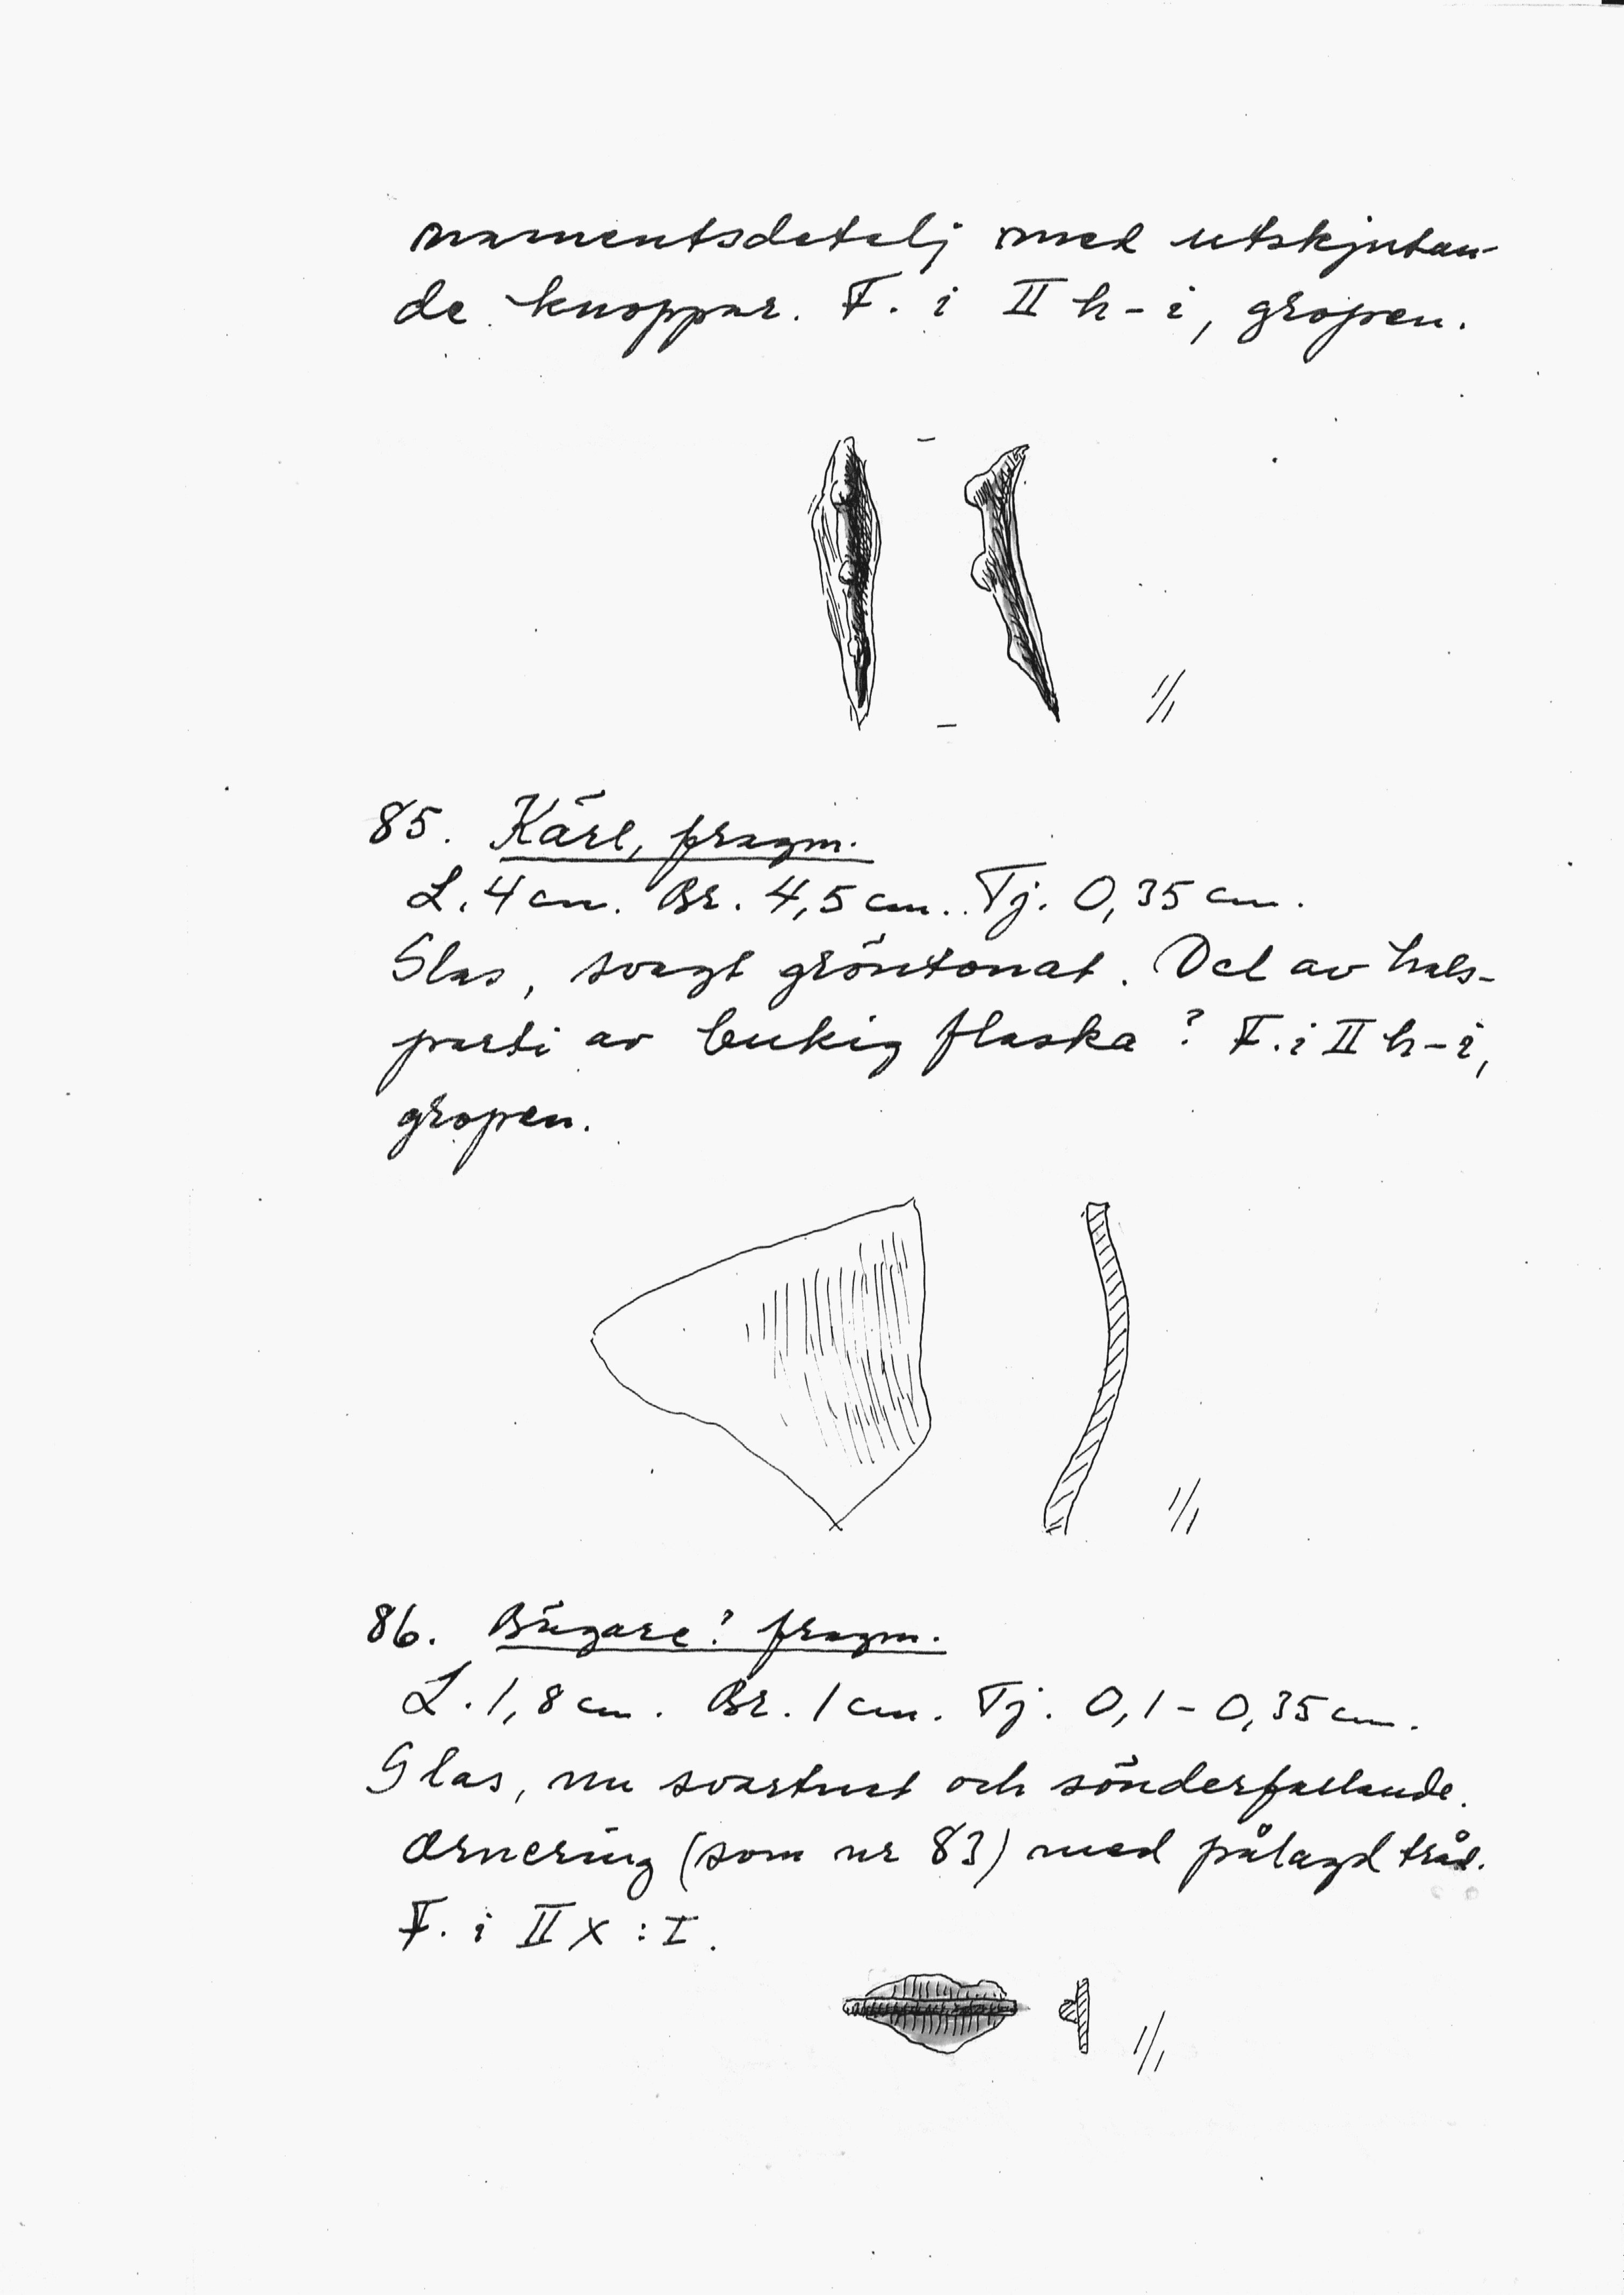 namentsdetalj med utskjutan-
de knoppar. F. i II h-i, gropen.
1/1
85. Kärl, fragm.
L. 4 cm. Br. 4,5 cm. Tj. 0,35 cm.
Glas, svagt gröntonat. Del av hals-
parti av bukig flaska? F. i II h-i,
gropen.
1/1
86. Bägare? fragm.
L. 1,8 cm. Br. 1 cm. Tj. 0,1 - 0,35 cm.
Glas, nu svartnat och sönderfallande.
Ornering (som nr 83) med pålagd tråd.
F. i II X : I.
1/1